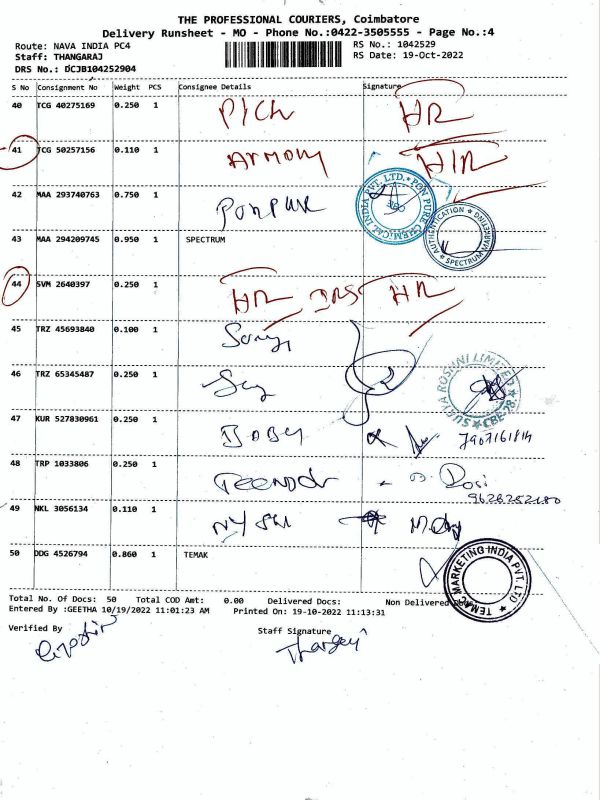 THE PROFESSIONAL COURIERS, Coimbatore
Delivery Runsheet - MO - Phone No.:0422-3505555 - Page No.:4
Route: NAVA INDIA PC4 RS No.: 1042529
Staff: THANGARAJ RS Date: 19-Oct-2022
DRS No.: DCJB104252904
S No Consignment No Weight PCS Consignee Details Signature
40 TCG 40275169 0.250 1 HR
41 TCG 50257156 0.110 1 Armony HR
42 MAA 293740763 0.750 1 Ponpure
PON PURE CHEMICAL INDIA PVT. LTD.
43 MAA 294209745 0.950 1 SPECTRUM
AUTHENTICATION SPECTRUM MARKETING
44 SVM 2640397 0.250 1 HR DRS HR
45 TRZ 45693840 0.100 1
46 TRZ 65345487 0.250 1
SURYA ROSHNI LIMITED CBE-28
47 KUR 527830961 0.250 1 Baby
48 TRP 1033806 0.250 1 Rosi
49 NKL 3056134 0.110 1
50 DDG 4526794 0.860 1 TEMAK
TEMAC MARKETING INDIA PVT. LTD
Total No. Of Docs: 50 Total COD Amt: 0.00 Delivered Docs: Non Delivered
Entered By :GEETHA 10/19/2022 11:01:23 AM Printed On: 19-10-2022 11:13:31
Verified By Staff Signature